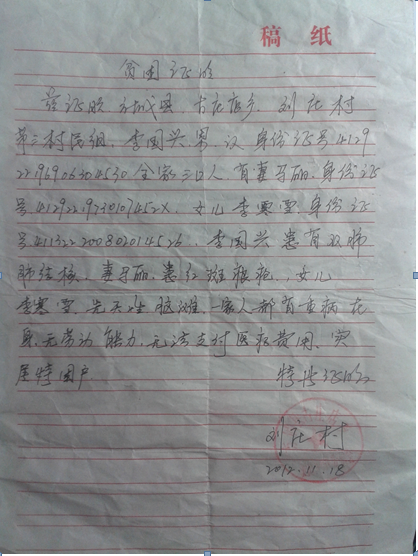 稿纸
贫困证明
兹证明 方城县、古庄店乡、刘庄村
第三村民组、李国兴 男、汉、身份证号4129
22196906304530 全家三口人、有妻子丽、身份证
号41292219730107452X、女儿李寒雪、身份证
号411322200802014526、李国兴患有双肺
肺结核、妻子丽、患红斑狼疮、女儿
李寒雪、先天性脑瘫、一家人都有重病在
身、无劳动能力、无法支付医救费用、实
属特困户 特此证明
刘庄村
2012.11.18